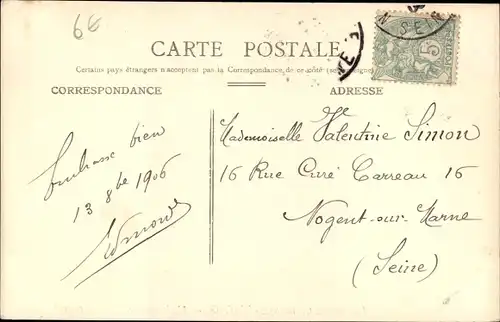 6€
CARTE POSTALE
Certains pays étrangers n'acceptent pas la Correspondance de ce côté (se renseigner)
CORRESPONDANCE
ADRESSE
Embrasse bien
13 8bre 1906
Edmond
Mademoiselle Valentine Simon
16 Rue Curé Carreau 16
Nogent-sur-Marne
(Seine)
5